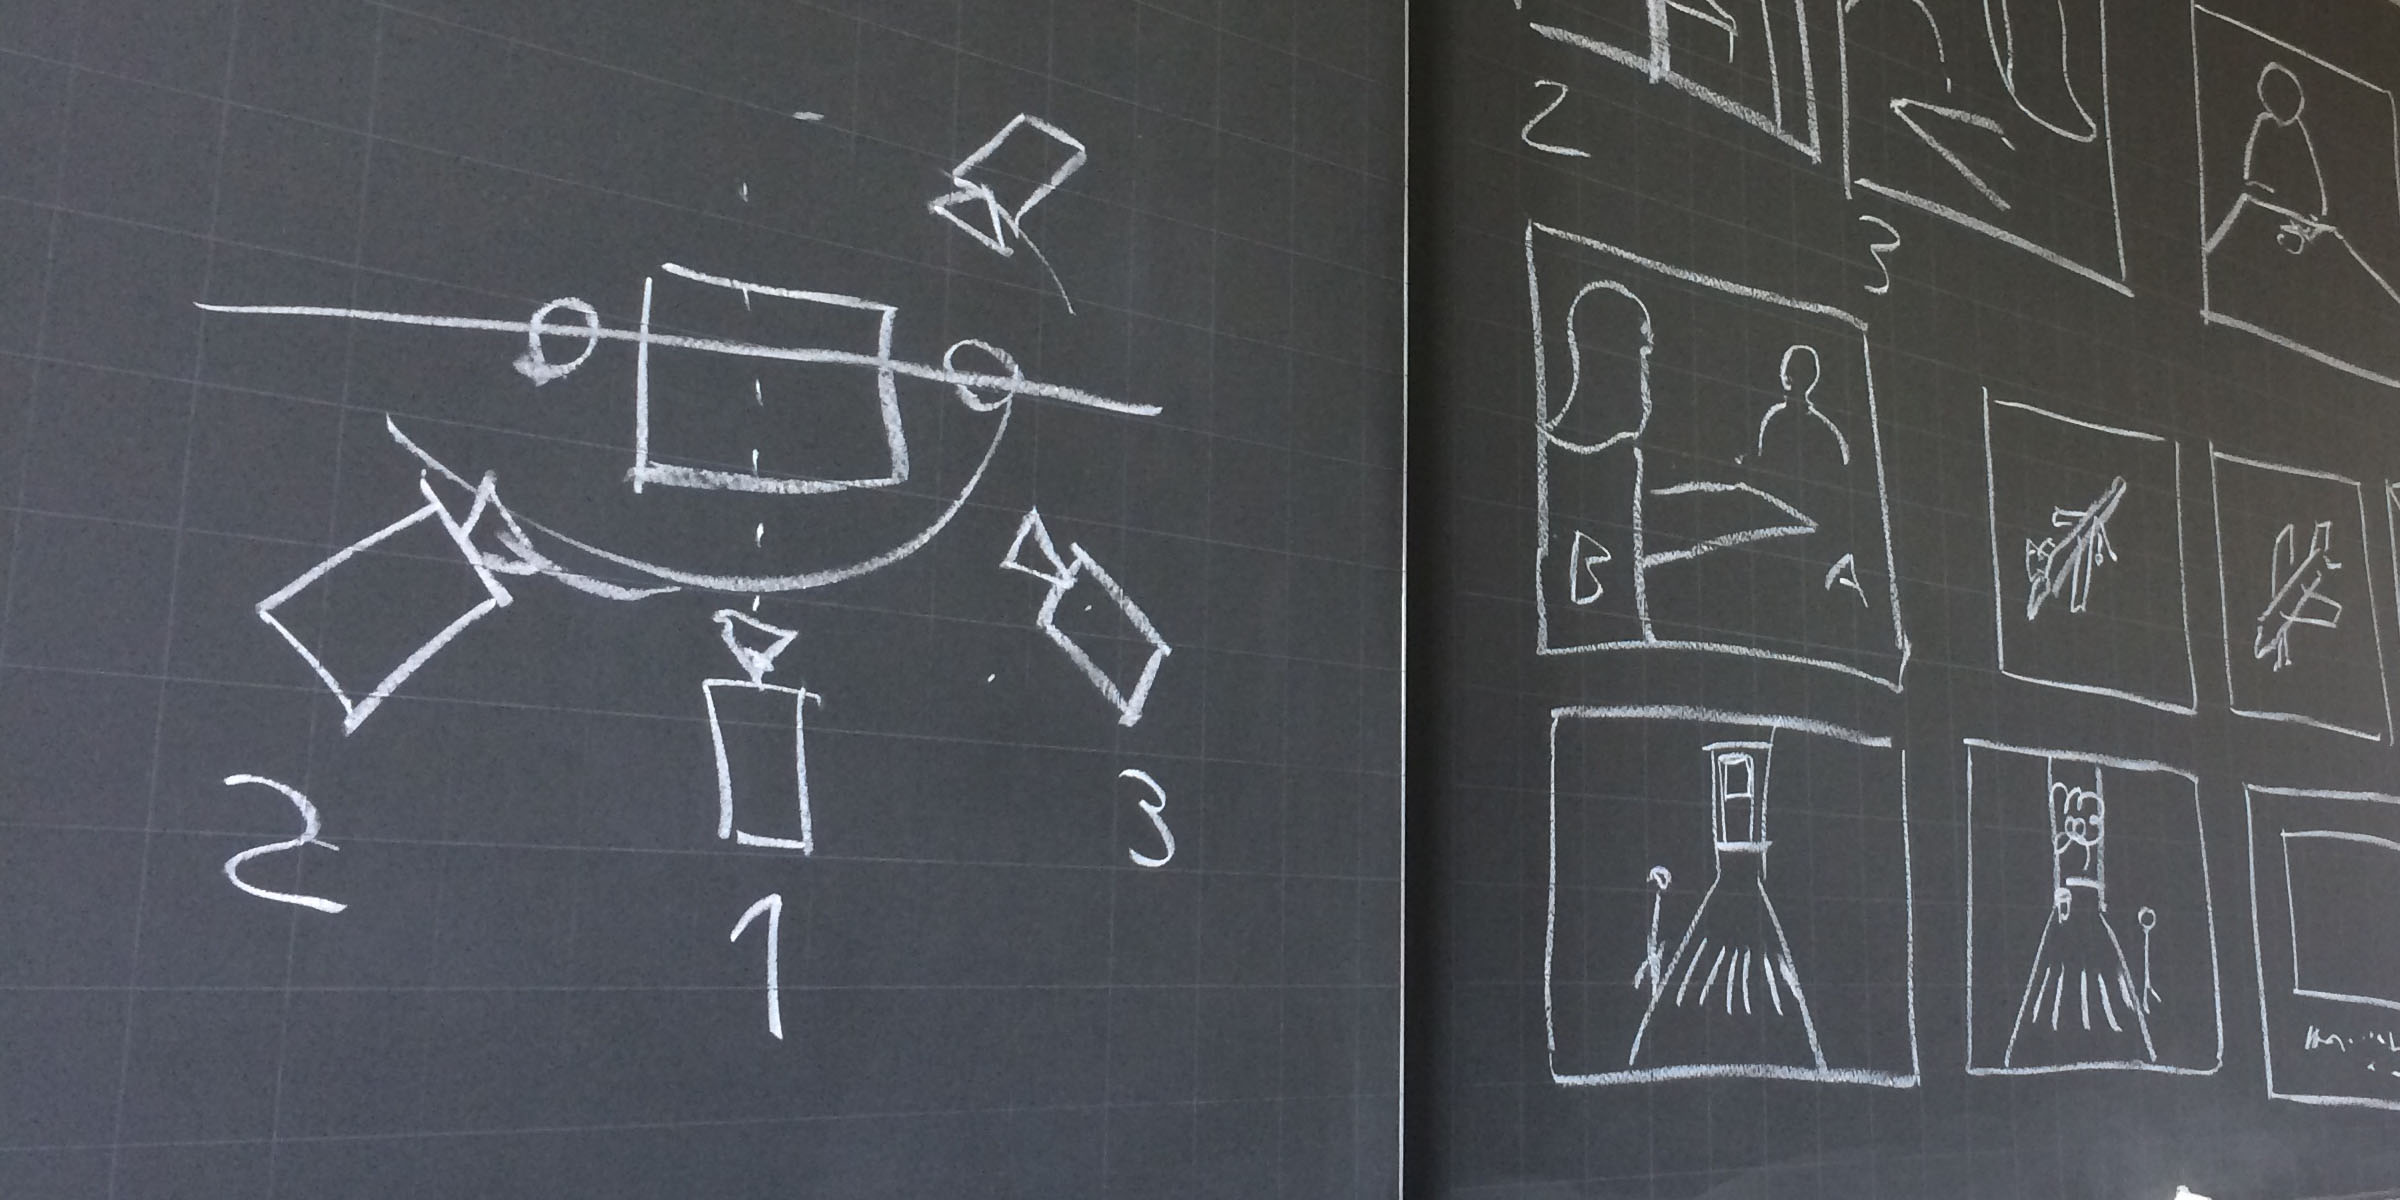 2
1
3
2
3
B
A